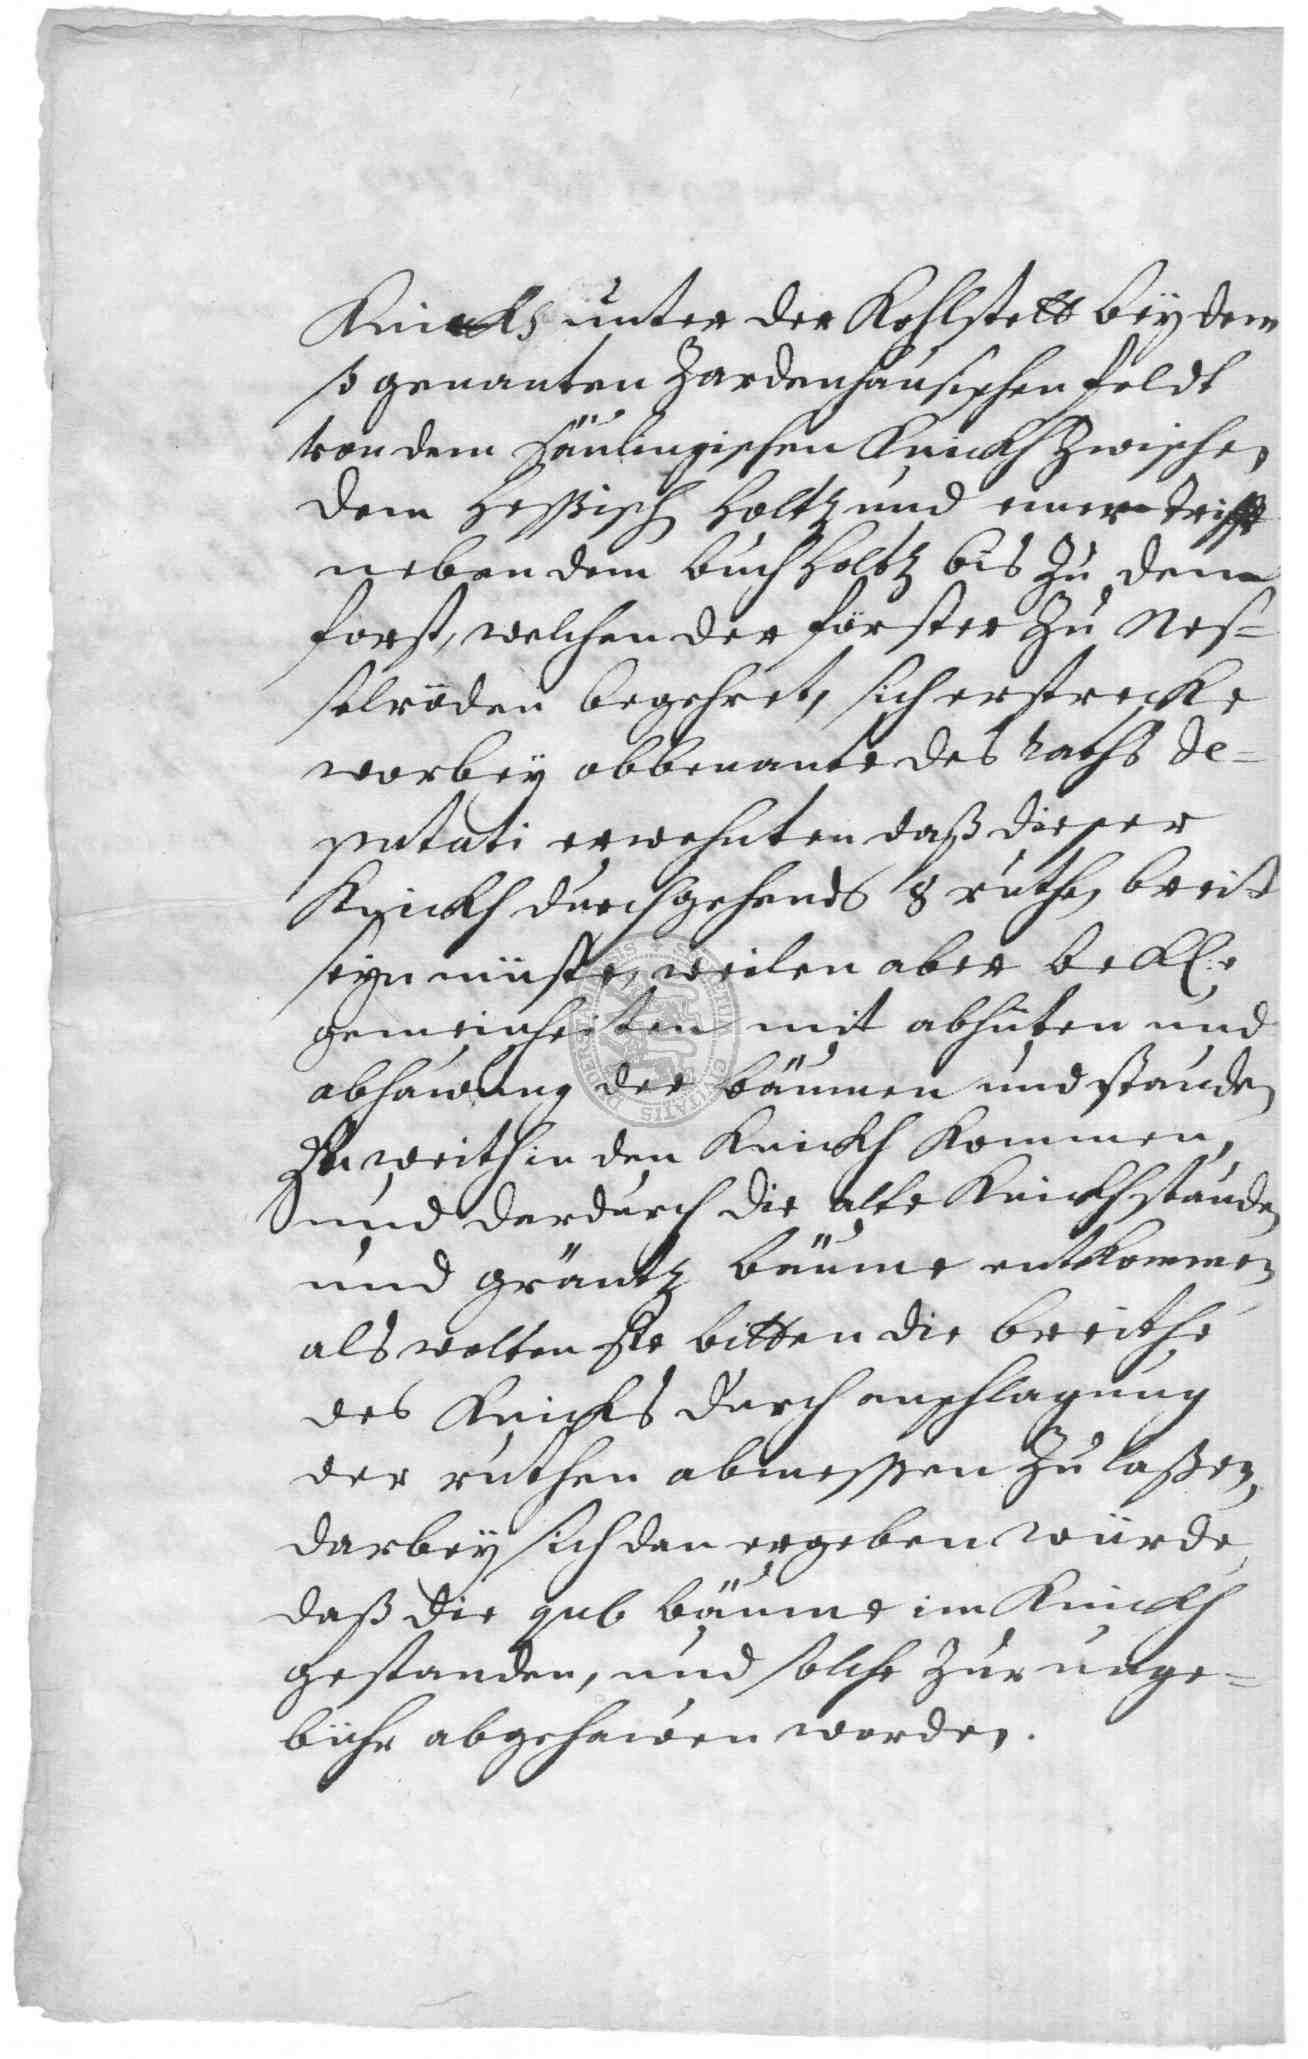 Knicks unter der Kohlstett bey dem
so genanten Zardenhausischen feldt
von dem Säulingischen Knickh zwischen
dem Heßisch Holtz und einer trifft
neben dem buchholtz bis zu dem
forst, welchen der förster zu Nes=
selröden begehret, sich erstrecke
worbey obbenante des raths De=
putati erwehnten daß dieser
Knickh durchgehends 8 ruthen breit
seyn müste, weilen aber bekl:e
gemeinheiten mit abhüten und
abhauung der bäumen und stauden
zu weith in den Knickh kommen,
und dardurch die alte Knickhstauden
und gräntz bäume entkommen
als wolten sie bitten die breithe
des Knicks durch anschlagung
der ruthen abmeßen zu laßen,
darbey sich dan ergeben würde,
daß die bäume im Knickh
gestanden, und solche zur unge=
bühr abgehauen worden.
SIGILLUM CIVITATIS DUDERSTADENSIS